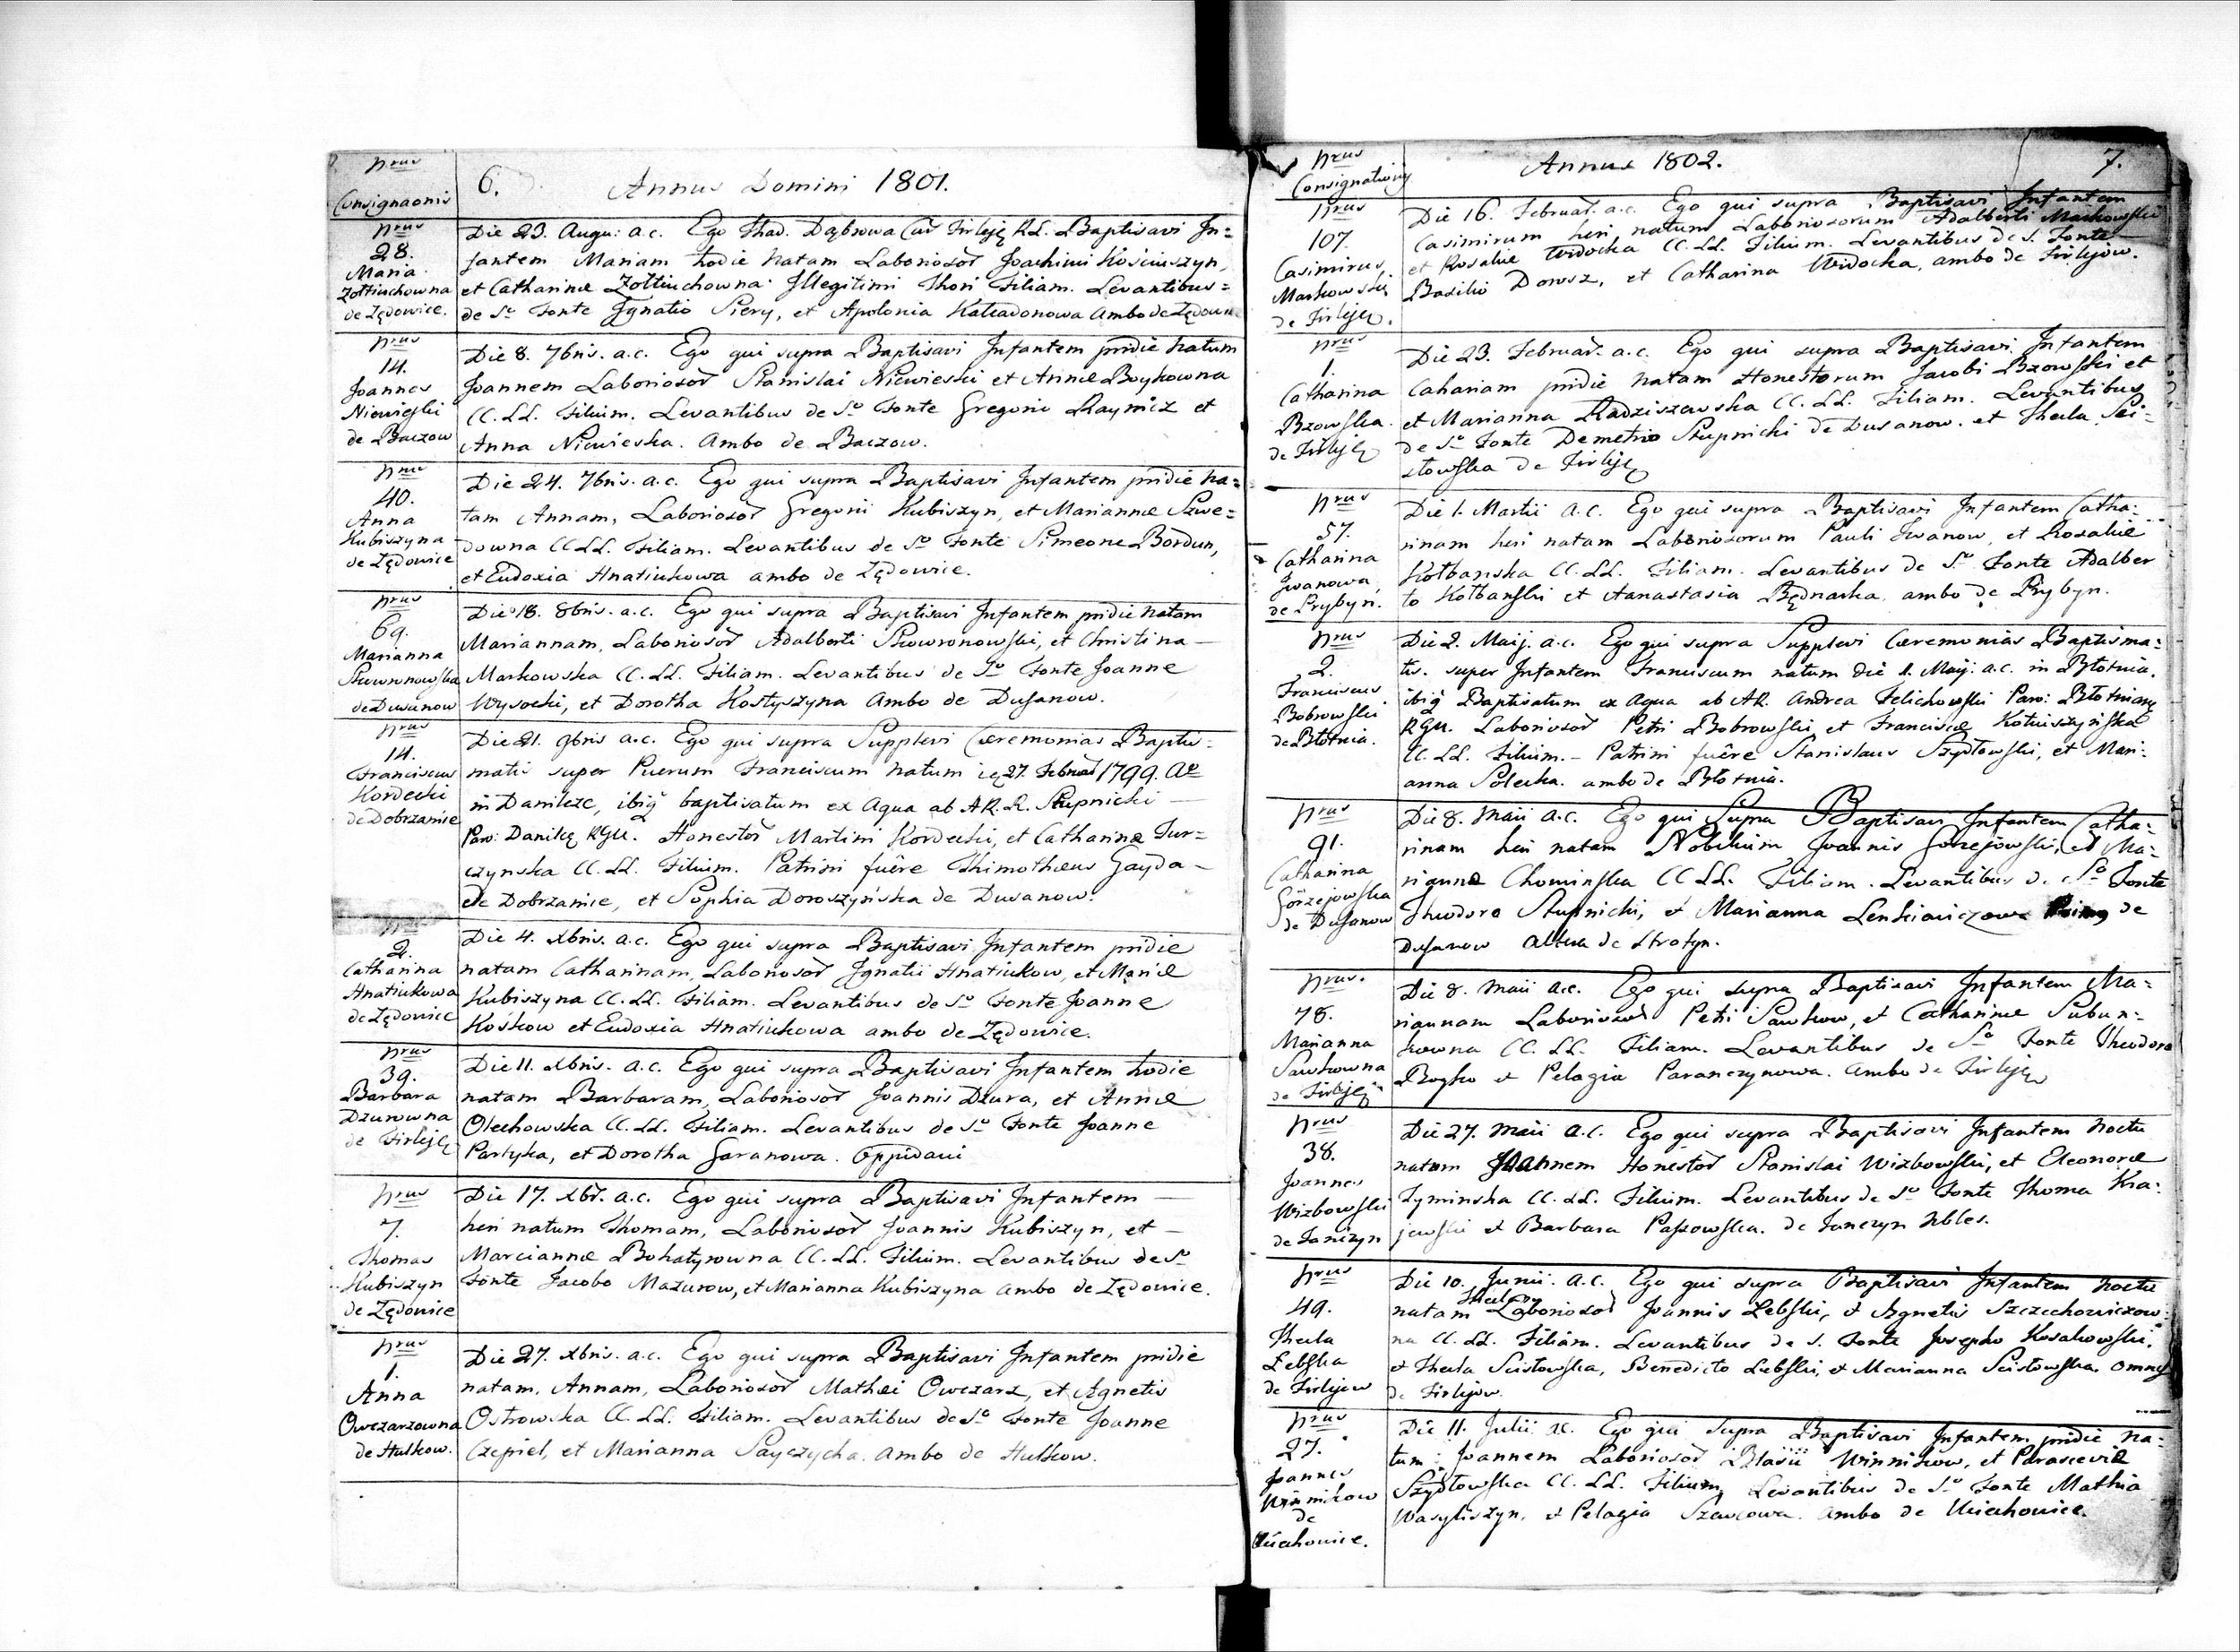 Nrus
Consignaonis
6.
Annus Domini 1801.
Nrus
28.
Maria
Zołtiuchowna
de Zędowice.
Die 23. Augu: a.c. Ego Thad. Dąbrowa Cur Firleję RL. Baptisavi In=
fantem Mariam hodie Natam Laboriosor Joachimi Kościuszyn,
et Catharinæ Zołtiuchowna Illegitimi Thori Filiam. Levantibus=
de So Fonte Ignatio Siery, et Apolonia Ambo de Zędowice
Nrus
14.
Joannes
Niewieski
de Baczow
Die 8. 7bris. a.c. Ego qui supra Baptisavi Infantem pridie Natum
Joannem Laboriosor Stanislai Niewieski et Annæ Boykowna
CC. LL. Filium. Levantibus de So Fonte Gregorio Raymiz et
Anna Niewieska. Ambo de Baczow.
Nrus
40.
Anna
Kubiszyna
de Zędowice
Die 24. 7bris. a.c. Ego qui supra Baptisavi Infantem pridie Na=
tam Annam, Laboriosor Gregorii Kubiszyn, et Mariannæ Szwe=
downa CC LL. Filiam. Levantibus de So Fonte Simeone Bordun,
et Eudoxia Hnatiukowa ambo de Zędowice.
Nrus
69.
Marianna
Skowronowska
de Dusanow
Die 18. 8bris. a.c. Ego qui supra Baptisavi Infantem pridie Natam
Mariannam, Laboriosor Adalberti Skowronowski, et Christina —
Markowska CC. LL. Filiam. Levantibus de So Fonte Joanne
Wysocki, et Dorotha Kostyszyna Ambo de Dusanow.
Nrus
14.
Franciscus
Kordecki
de Dobrzanice
Die 21. 9bris a.c. Ego qui supra Supplevi Cæremonias Baptis=
matis super Puerum Franciscum Natum 27. Februar 1799. Ao
in Danilcze, ibiq baptisatum ex Aqua ab A.R. R. Stupnicki —
Paro: Danilcę RGU. Honestor Martini Kordecki, et Catharinæ Tur=
czynska CC. LL. Filium. Patrini fuêre Thimotheus Gayda —
de Dobrzanice, et Sophia Doroszyńska de Dusanow.
Nrus
2.
Catharina
Hnatiukowa
de Zędowice
Die 4. Xbris. a.c. Ego qui supra Baptisavi Infantem pridie
natam Catharinam, Laboriosor Ignatii Hnatiukow, et Mariæ
Kubiszyna CC. LL. Filiam. Levantibus de So Fonte Joanne
Kośkow et Eudoxia Hnatiukowa ambo de Zędowice.
Nrus
39.
Barbara
Dzurowna
de Firleję
Die 11. Xbris. a.c. Ego qui supra Baptisavi Infantem hodie
natam Barbaram, Laboriosor Joannis Dzura, et Annæ
Olechowska CC. LL. Filiam. Levantibus de So Fonte Joanne
Partyka, et Dorotha Garanowa. Oppidani
Nrus
7.
Thomas
Kubiszyn
de Zędowice
Die 17. Xbr. a.c. Ego qui supra Baptisavi Infantem —
heri natum Thomam, Laboriosor Joannis Kubiszyn, et —
Marciannæ Bohatyrowna CC. LL. Filium. Levantibus de So
Fonte Jacobo Mazurow, et Marianna Kubiszyna ambo de Zędowice.
Nrus
1.
Anna
Owczarzowna
de Hulkow.
Die 27. Xbris. a.c. Ego qui supra Baptisavi Infantem pridie
natam, Annam, Laboriosor Mathei Owczarz, et Agnetis
Ostrowska CC. LL. Filiam. Levantibus de So Fonte Joanne
Czepiel, et Marianna Sayczycha. Ambo de Hulkow.
Nrus
Consignationis
Annus 1802.
7.
Nrus
107.
Casimirus
Markowski
de Firleję.
Die 16. Februar. a.c. Ego qui supra Baptisavi Infantem
Casimirum heri natum Laboriosorum Adalberti Markowski
et Rosaliæ Widocka CC. LL. Filium. Levantibus de S. Fonte
Basilio Dorosz, et Catharina Widocka, ambo de Firlejow.
Nrus
1.
Catharina
Bzowska
de Firleję
Die 23. Februar. a.c. Ego qui supra Baptisavi Infantem
Cahariam pridie Natam Honestorum Jacobi Bzowski et
et Marianna Radziszewska CC. LL. Filiam. Levantibus
de So Fonte Demetrio Stupnicki de Dusanow. et Thecla Sci=
stowska de Firleję
Nrus
57.
Catharina
Iwanowa
de Prybyn.
Die 1. Martii a.c. Ego qui supra Baptisavi Infantem Catha:
rinam heri natam Laboriosorum Pauli Iwanow, et Rosaliæ
Kołbanska CC. LL. Filiam. Levantibus de So Fonte Adalber
to Kołbanski et Aanastasia Będnarka, ambo de Prybyn.
Nrus
2.
Franciscus
Bobrowski
de Błotnia.
Die 2. Maij. a.c. Ego qui supra Supplevi Cæremonias Baptisma:
tis. super Infantem Franciscum natum die 1. Maij: a.c. in Błotnia,
ibiq Baptisatum ex Aqua ab AR. Andrea Felichowski Paro: Błotnianę
RGU. Laboriosor Petri Bobrowski, et Franciscæ Kotuiszyńska
CC. LL. Filium. — Patrini fuêre Stanislaus Szydłowski, et Mari:
anna Solecka. ambo de Błotnia.
Nrus
91.
Catharina
Gorzejowska
de Dusanow
Die 8. Maii a.c. Ego qui Supra Baptisavi Infantem Catha:
rinam heri natam Nobilium Joannis Gorzejowski, et Ma:
riannæ Chominska CC LL. Filiam. Levantibus de So Fonte
Theodoro Stupnicki, et Marianna Lenkiewiczowa de
Dusanow altera de Stratyn.
Nrus.
78.
Marianna
Sawkowna
de Firleję
Die 8. Maii a.c. Ego qui supra Baptisavi Infantem Ma=
riannam Laboriosor Petri Sawkow, et Catharinæ Subun=
kowna CC. LL. Filiam. Levantibus de So Fonte Theodoro
Boyko et Pelagia Paranczynowa. ambo de Firleję
Nrus
38.
Joannes
Wizbowski
de Janczyn
Die 27. Maii a.c. Ego qui supra Baptisavi Infantem Noctu
natum Joannem Honestor Stanislai Wizbowski, et Eleonoræ
Zyminska CC. LL. Filium. Levantibus de So Fonte Thoma Kra:
jewski et Barbara Passowska. de Janczyn Nbles.
Nrus
49.
Thecla
Lebska
de Firlejow
Die 10. Junii. a.c. Ego qui supra Baptisavi Infantem Noctu
natam Theclam Laboriosor Joannis Lebski, et Agnetis Szczechowiczow=
na CC. LL. Filiam. Levantibus de S. Fonte Josepho Kosakowski.
et Thecla Scistowska, Benedicto Lebski, et Marianna Scistowska. omnes
de Firlejow.
Nrus
27.
Joannes
Winnikow
de
Uciechowice.
Die 11. Julii a.c. Ego qui Supra Baptisavi Infantem pridie Na:
tum: Joannem Laboriosor Blasii Winnikow, et Parasceviæ
Szydłowska CC. LL. Filium, Levantibus de So Fonte Mathia
Wasyliszyn, et Pelagia Szewcowa. ambo de Uciechowice.